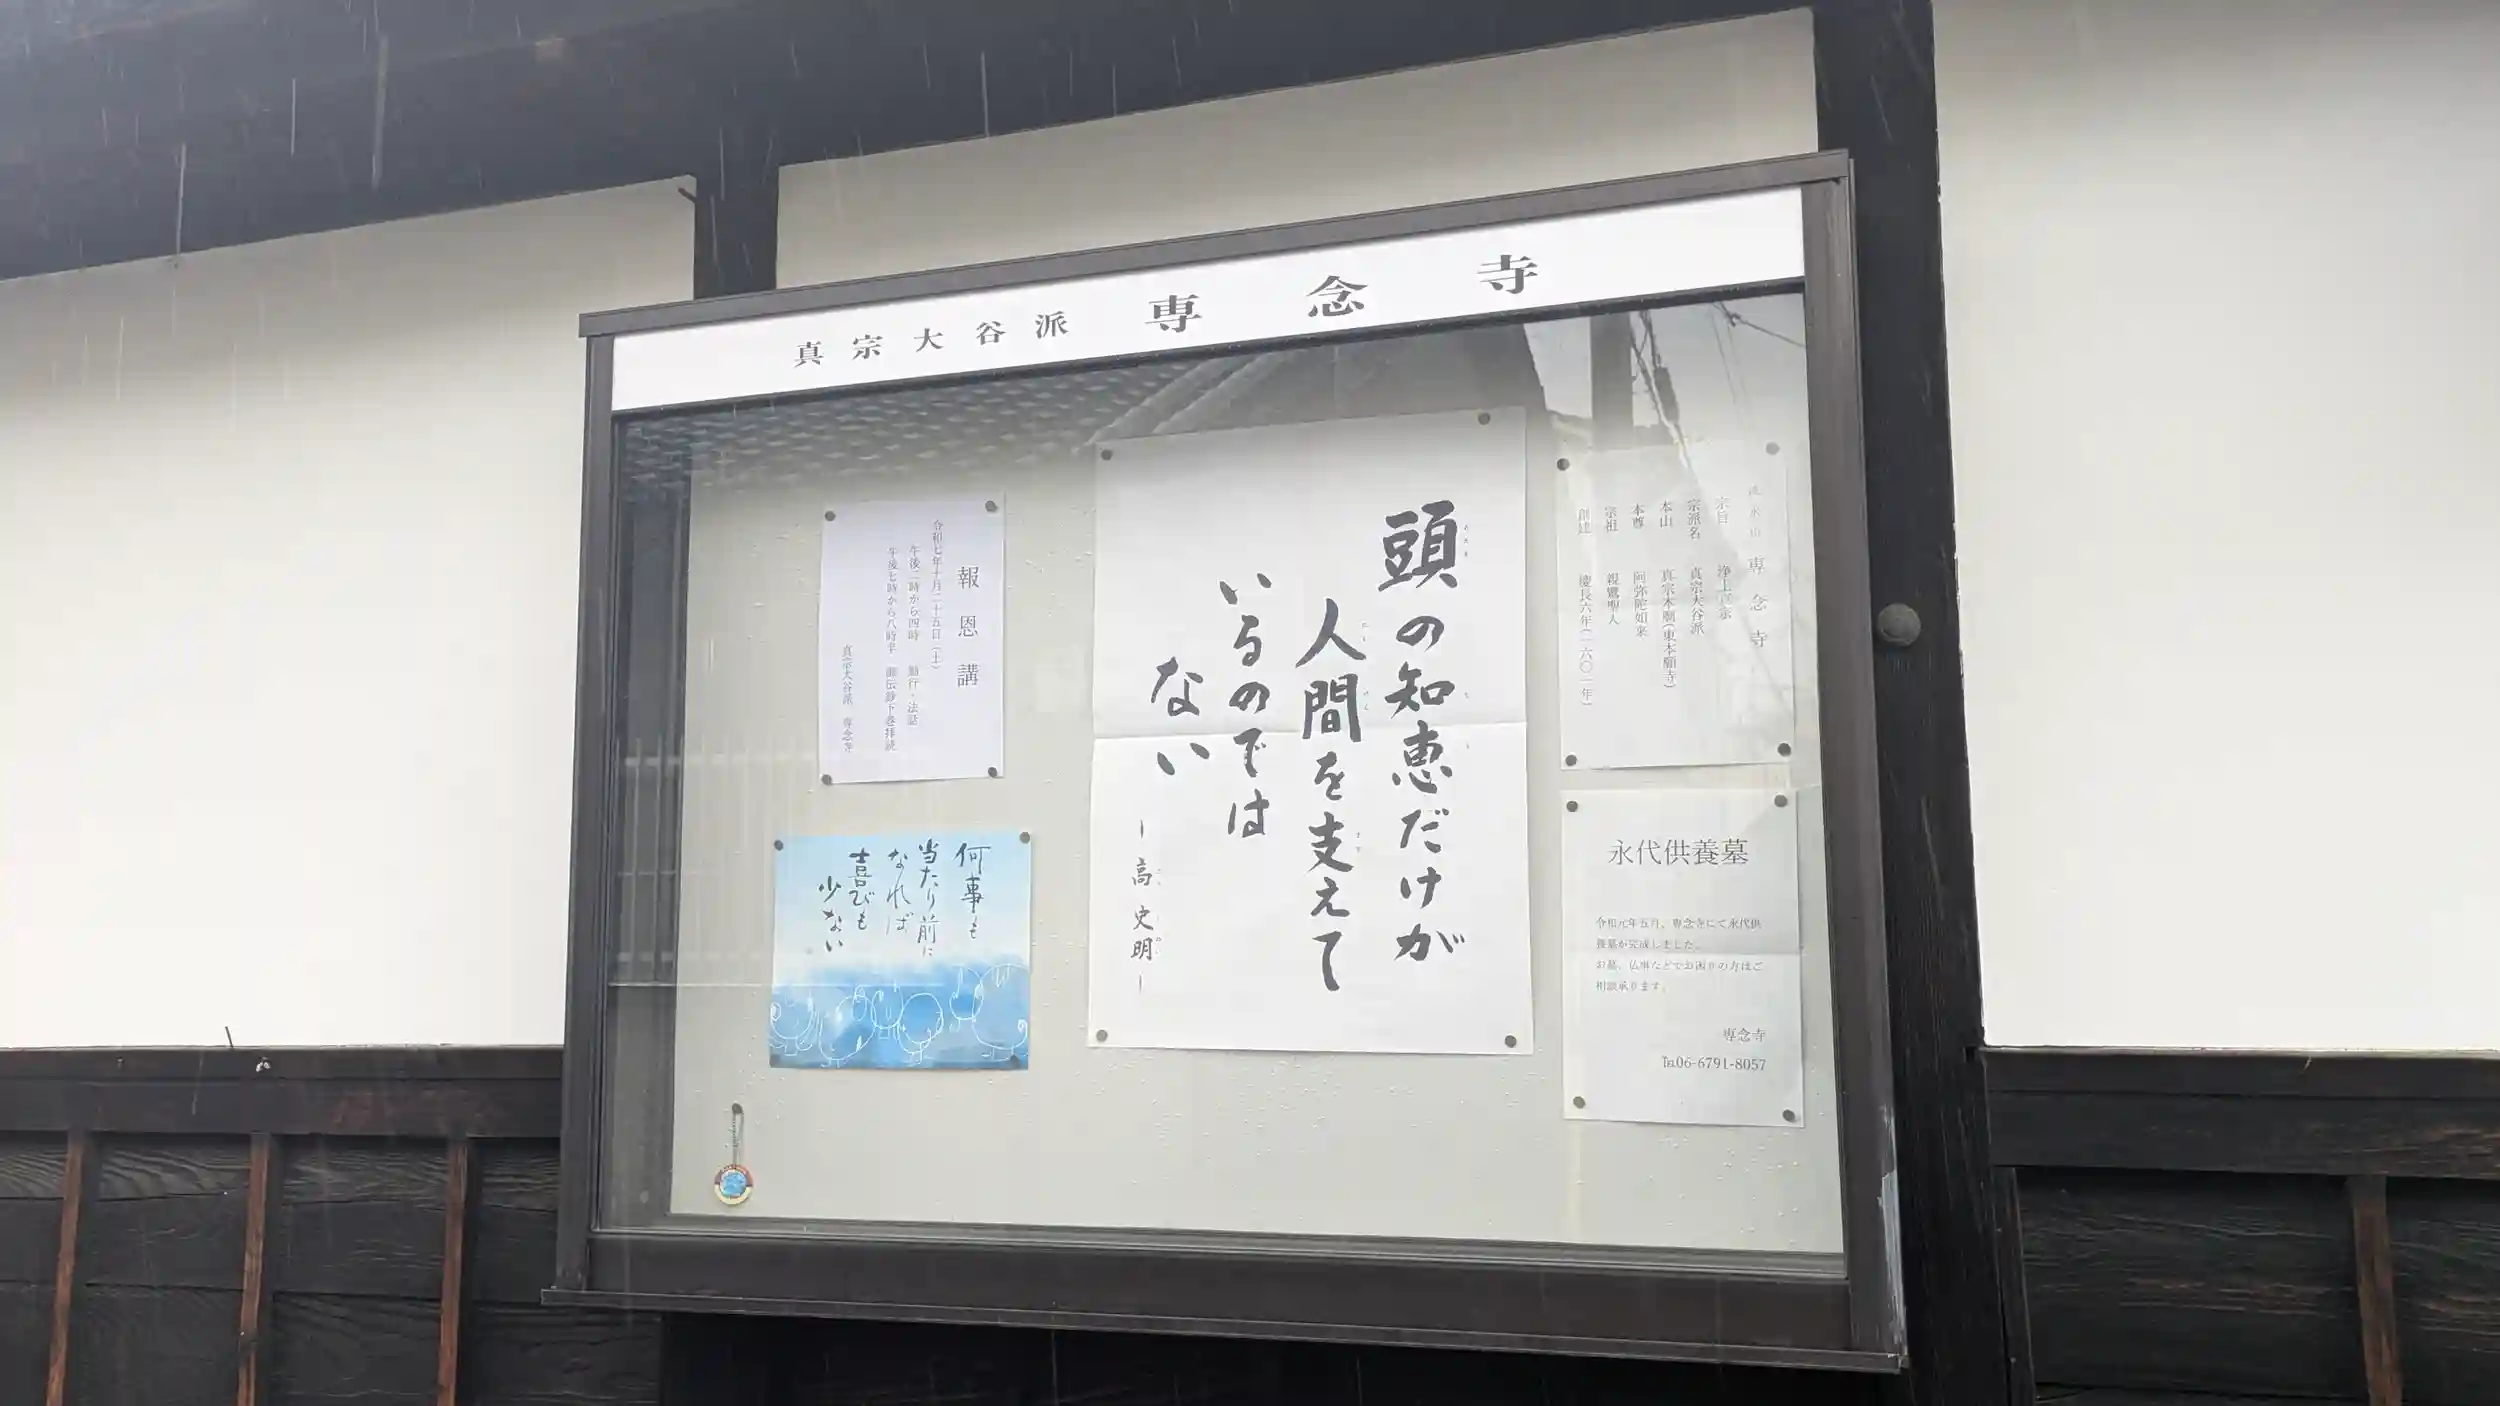 真宗大谷派 専念寺
頭の知恵だけが
人間を支えて
いるのでは
ない
―高史明―
専念寺
宗旨 浄土真宗
宗派名 真宗大谷派
本山 真宗本廟(東本願寺)
本尊 阿弥陀如来
宗祖 親鸞聖人
創建 慶長六年(一六〇一年)
永代供養墓
令和元年五月、専念寺にて永代供
養墓が完成しました。
お墓、仏事などでお困りの方はご
相談承ります。
専念寺
℡06-6791-8057
報恩講
令和七年十月二十五日(土)
午後二時から四時 勤行・法話
午後七時から八時半 御伝鈔下巻拝読
真宗大谷派 専念寺
何事も
当たり前に
なれば
喜びも
少ない